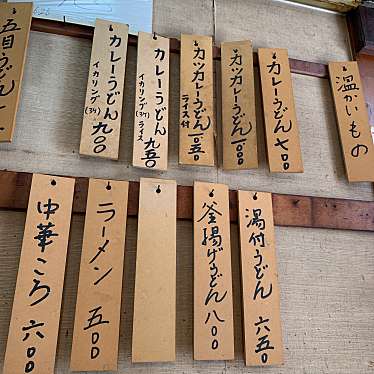 温かいもの
カレーうどん 七〇〇
カツカレーうどん 一、〇〇〇
カツカレーうどん ライス付 一、〇五〇
カレーうどん 九五〇
イカリング(3ケ) ライス
カレーうどん 九〇〇
イカリング(3ケ)
五目うどん
湯付うどん 六五〇
釜揚げうどん 八〇〇
ラーメン 五〇〇
中華ころ 六〇〇